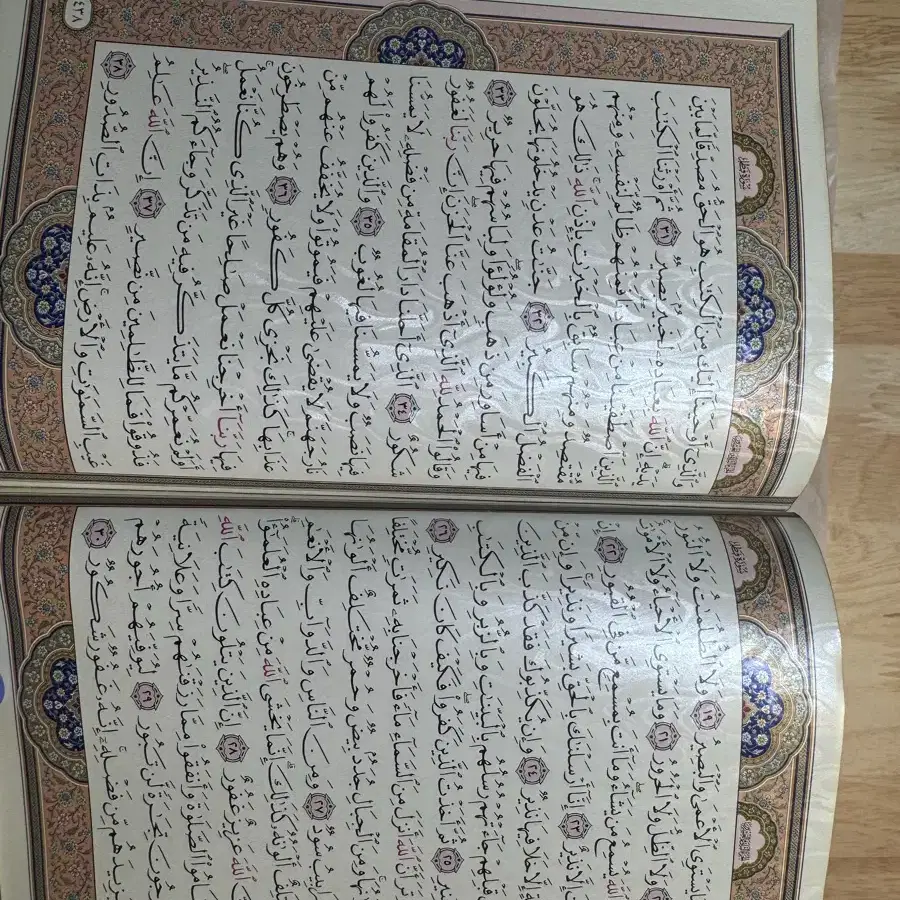 يَسْتَوِى ٱلْأَعْمَىٰ وَٱلْبَصِيرُ ١٩ وَلَا ٱلظُّلُمَٰتُ وَلَا ٱلنُّورُ
وَلَا ٱلظِّلُّ وَلَا ٱلْحَرُورُ ٢١ وَمَا يَسْتَوِى ٱلْأَحْيَآءُ وَلَا ٱلْأَمْوَٰتُ
ٱللَّهَ يُسْمِعُ مَن يَشَآءُ وَمَآ أَنتَ بِمُسْمِعٍ مَّن فِى ٱلْقُبُورِ ٢٢ إِنْ
إِلَّا نَذِيرٌ ٢٣ إِنَّآ أَرْسَلْنَٰكَ بِٱلْحَقِّ بَشِيرًا وَنَذِيرًا وَإِن مِّنْ
إِلَّا خَلَا فِيهَا نَذِيرٌ ٢٤ وَإِن يُكَذِّبُوكَ فَقَدْ كَذَّبَ ٱلَّذِينَ
قَبْلِهِمْ جَآءَتْهُمْ رُسُلُهُم بِٱلْبَيِّنَٰتِ وَبِٱلزُّبُرِ وَبِٱلْكِتَٰبِ
٢٥ ثُمَّ أَخَذْتُ ٱلَّذِينَ كَفَرُوا۟ فَكَيْفَ كَانَ نَكِيرِ ٢٦
تَرَ أَنَّ ٱللَّهَ أَنزَلَ مِنَ ٱلسَّمَآءِ مَآءً فَأَخْرَجْنَا بِهِۦ ثَمَرَٰتٍ مُّخْتَلِفًا
وَمِنَ ٱلْجِبَالِ جُدَدٌۢ بِيضٌ وَحُمْرٌ مُّخْتَلِفٌ أَلْوَٰنُهَا
سُودٌ ٢٧ وَمِنَ ٱلنَّاسِ وَٱلدَّوَآبِّ وَٱلْأَنْعَٰمِ
أَلْوَٰنُهُۥ كَذَٰلِكَ إِنَّمَا يَخْشَى ٱللَّهَ مِنْ عِبَادِهِ ٱلْعُلَمَٰٓؤُا۟
ٱللَّهَ عَزِيزٌ غَفُورٌ ٢٨ إِنَّ ٱلَّذِينَ يَتْلُونَ كِتَٰبَ ٱللَّهِ
ٱلصَّلَوٰةَ وَأَنفَقُوا۟ مِمَّا رَزَقْنَٰهُمْ سِرًّا وَعَلَانِيَةً
تِجَٰرَةً لَّن تَبُورَ ٢٩ لِيُوَفِّيَهُمْ أُجُورَهُمْ
وَيَزِيدَهُم مِّن فَضْلِهِۦٓ إِنَّهُۥ غَفُورٌ شَكُورٌ ٣٠
٤٣٨
وَٱلَّذِىٓ أَوْحَيْنَآ إِلَيْكَ مِنَ ٱلْكِتَٰبِ هُوَ ٱلْحَقُّ مُصَدِّقًا لِّمَا بَيْنَ
يَدَيْهِ إِنَّ ٱللَّهَ بِعِبَادِهِۦ لَخَبِيرٌۢ بَصِيرٌ ٣١ ثُمَّ أَوْرَثْنَا ٱلْكِتَٰبَ
ٱلَّذِينَ ٱصْطَفَيْنَا مِنْ عِبَادِنَا فَمِنْهُمْ ظَالِمٌ لِّنَفْسِهِۦ وَمِنْهُم
مُّقْتَصِدٌ وَمِنْهُمْ سَابِقٌۢ بِٱلْخَيْرَٰتِ بِإِذْنِ ٱللَّهِ ذَٰلِكَ هُوَ
ٱلْفَضْلُ ٱلْكَبِيرُ ٣٢ جَنَّٰتُ عَدْنٍ يَدْخُلُونَهَا يُحَلَّوْنَ
فِيهَا مِنْ أَسَاوِرَ مِن ذَهَبٍ وَلُؤْلُؤًا وَلِبَاسُهُمْ فِيهَا حَرِيرٌ ٣٣
وَقَالُوا۟ ٱلْحَمْدُ لِلَّهِ ٱلَّذِىٓ أَذْهَبَ عَنَّا ٱلْحَزَنَ إِنَّ رَبَّنَا لَغَفُورٌ
شَكُورٌ ٣٤ ٱلَّذِىٓ أَحَلَّنَا دَارَ ٱلْمُقَامَةِ مِن فَضْلِهِۦ لَا يَمَسُّنَا
فِيهَا نَصَبٌ وَلَا يَمَسُّنَا فِيهَا لُغُوبٌ ٣٥ وَٱلَّذِينَ كَفَرُوا۟ لَهُمْ
نَارُ جَهَنَّمَ لَا يُقْضَىٰ عَلَيْهِمْ فَيَمُوتُوا۟ وَلَا يُخَفَّفُ عَنْهُم مِّنْ
عَذَابِهَا كَذَٰلِكَ نَجْزِى كُلَّ كَفُورٍ ٣٦ وَهُمْ يَصْطَرِخُونَ
فِيهَا رَبَّنَآ أَخْرِجْنَا نَعْمَلْ صَٰلِحًا غَيْرَ ٱلَّذِى كُنَّا نَعْمَلُ
أَوَلَمْ نُعَمِّرْكُم مَّا يَتَذَكَّرُ فِيهِ مَن تَذَكَّرَ وَجَآءَكُمُ ٱلنَّذِيرُ
فَذُوقُوا۟ فَمَا لِلظَّٰلِمِينَ مِن نَّصِيرٍ ٣٧ إِنَّ ٱللَّهَ عَٰلِمُ
غَيْبِ ٱلسَّمَٰوَٰتِ وَٱلْأَرْضِ إِنَّهُۥ عَلِيمٌۢ بِذَاتِ ٱلصُّدُورِ ٣٨